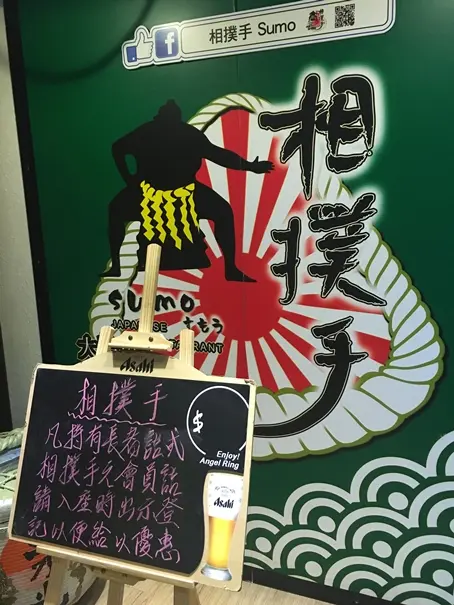 相撲手 Sumo
相撲手
sumo
JAPANESE すもう
大
RANT
Asahi
相撲手
凡持有長者咭或
相撲手之會員咭
請入座時出示登
記以便給以優惠
$
Enjoy!
Angel Ring
Asahi